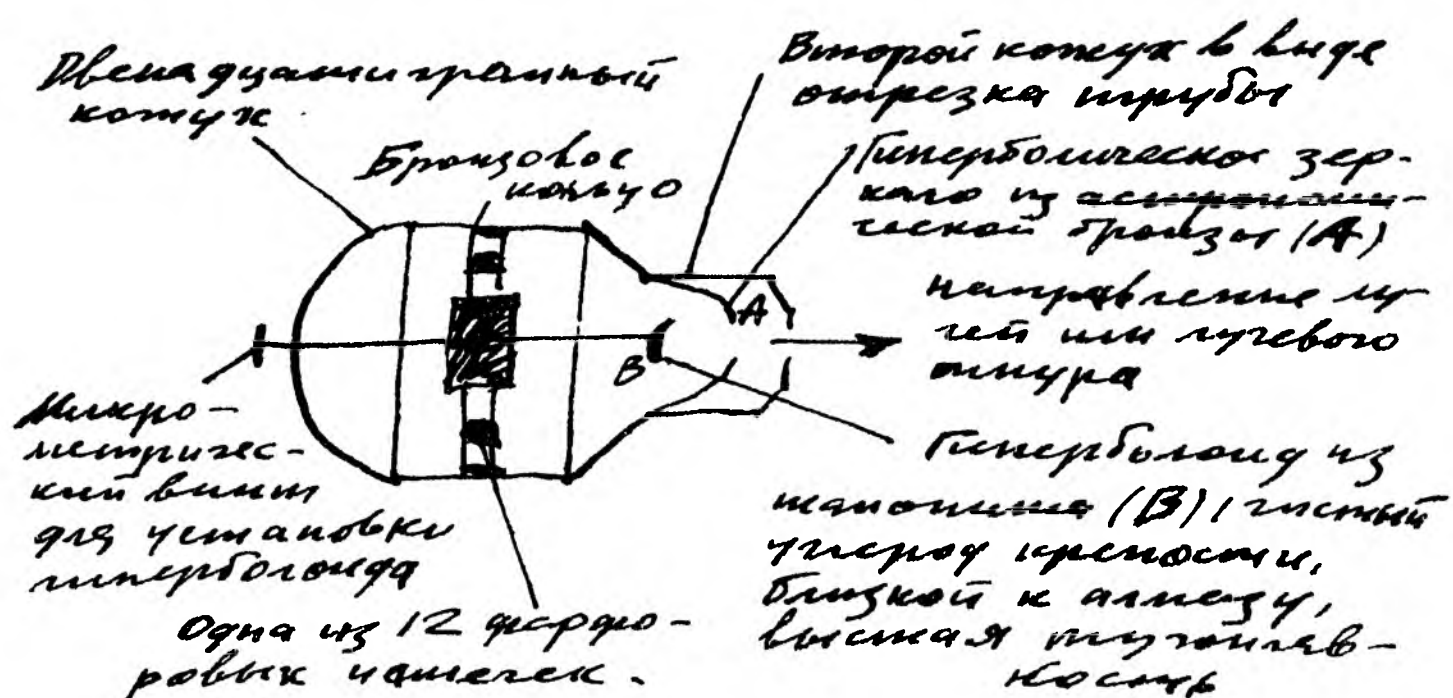 Двенадцатигранный
кожух
Бронзовое
кольцо
Второй кожух в виде
отрезка трубы
Гиперболическое зер-
кало из астрономи-
ческой бронзы (А)
направление лу-
чей или лучевого
шнура
А
В
Микро-
метричес-
кий винт
для установки
гиперболоида
Одна из 12 фарфо-
ровых чашечек.
Гиперболоид из
шамонита (В), чистый
углерод крепости,
близкой к алмазу,
высшая тугоплав-
кость